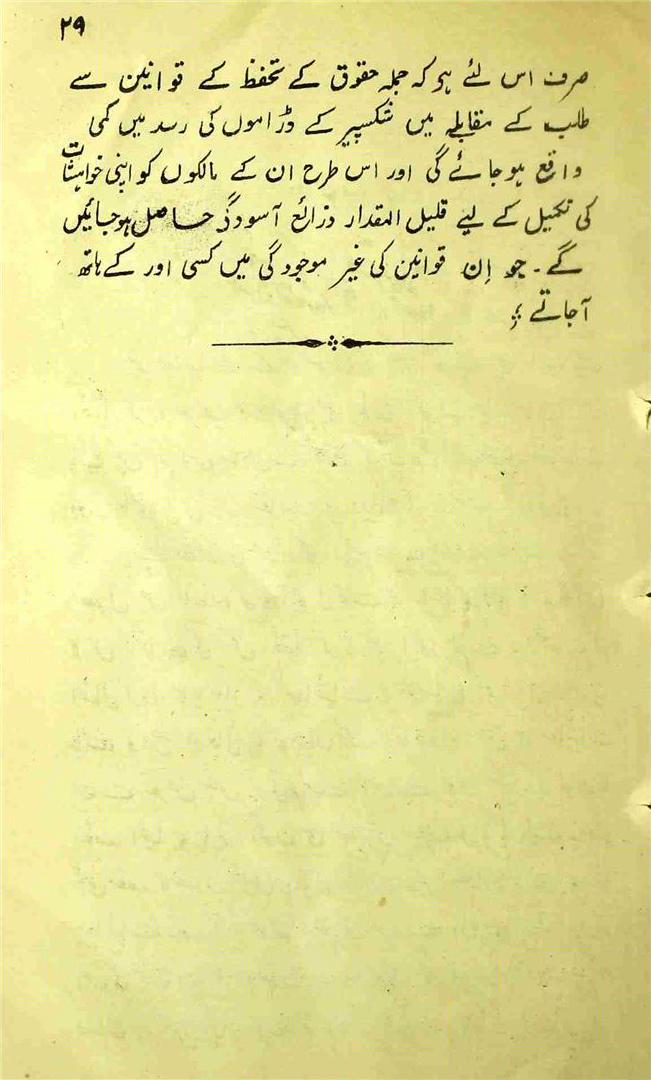 ۲۹
صرف اس لئے ہو کہ جملہ حقوق کے تحفظ کے قوانین سے
طلب کے مقابلے میں شکسپیر کے ڈراموں کی رسد میں کمی
واقع ہو جائے گی اور اس طرح ان کے مالکوں کو اپنی خواہشات
کی تکمیل کے لیے قلیل المقدار ذرائع آسودگی حاصل ہو جائیں
گے۔ جو اِن قوانین کی غیر موجودگی میں کسی اور کے ہاتھ
آجاتے ؛